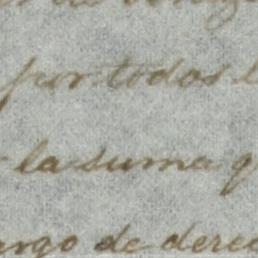 por todos l
la suma q
argo de derec